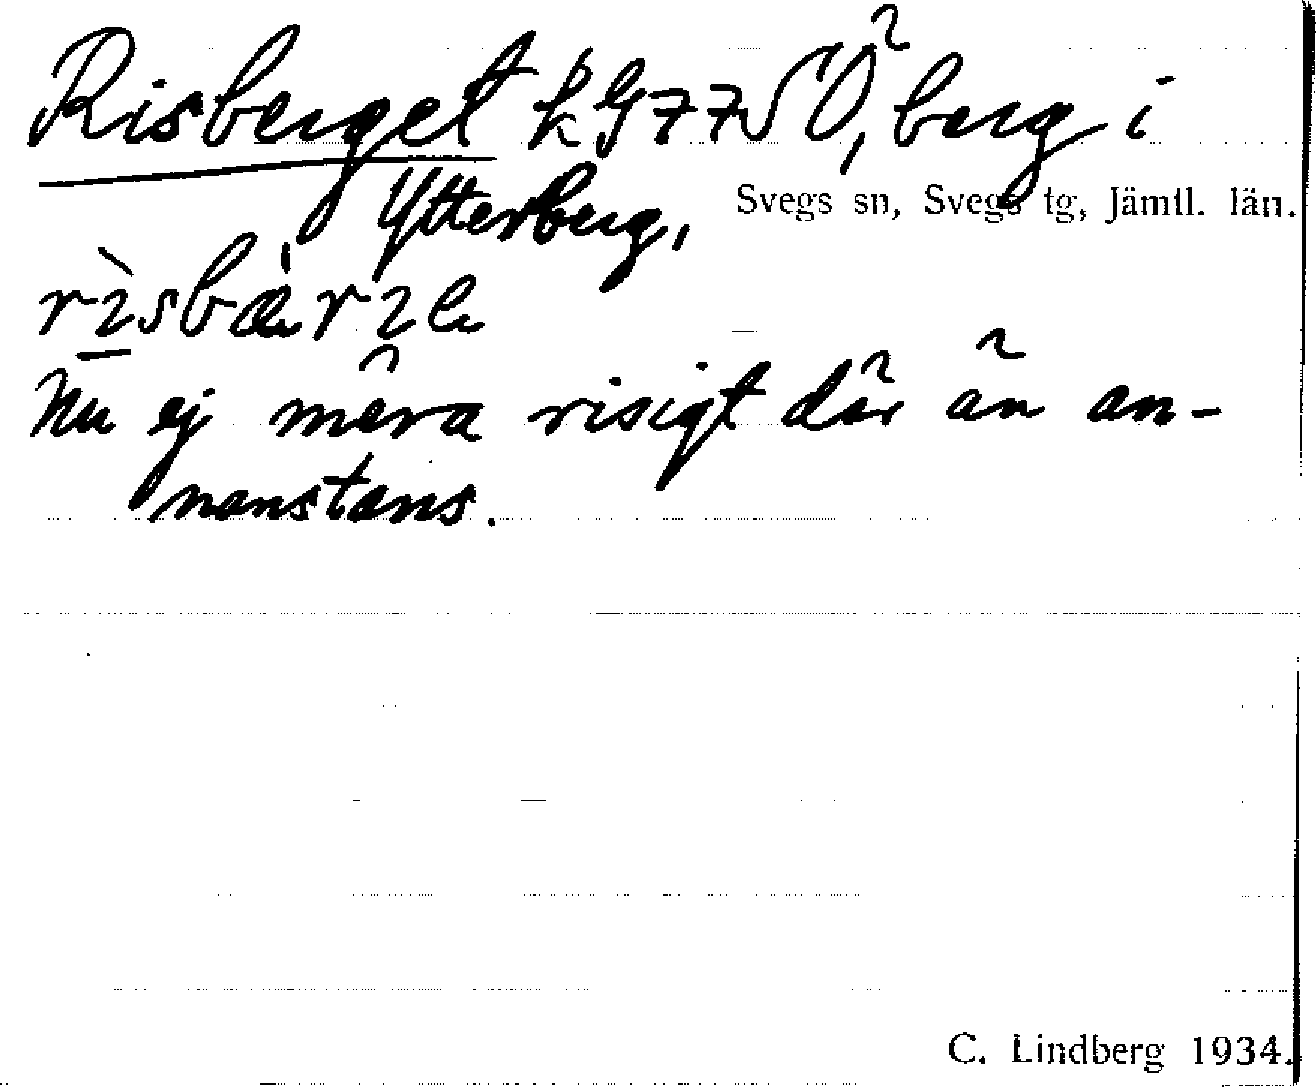 Risberget kG77SÖ, berg i
Ytterberg, Svegs sn, Svegs tg, Jämtl. län.
Nu ej mera risigt där än an-
nanstans.
C. Lindberg 1934.